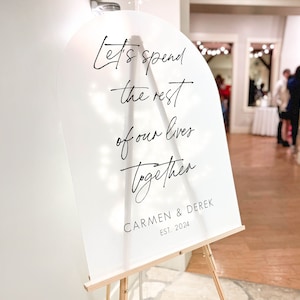 Let's spend
the rest
of our lives
together
CARMEN & DEREK
EST. 2024